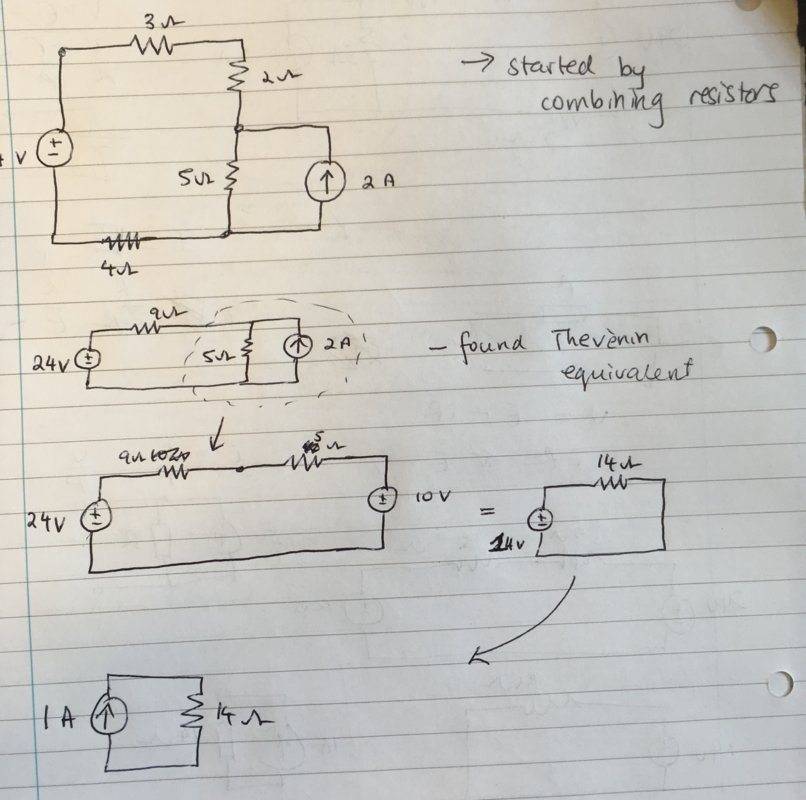 3Ω
2Ω
→ started by
combining resistors
V
5Ω
2 A
4Ω
9Ω
24V
5Ω
2A
- found Thevènin
equivalent
9Ω
5Ω
24V
10V
=
14Ω
14V
1 A
14Ω